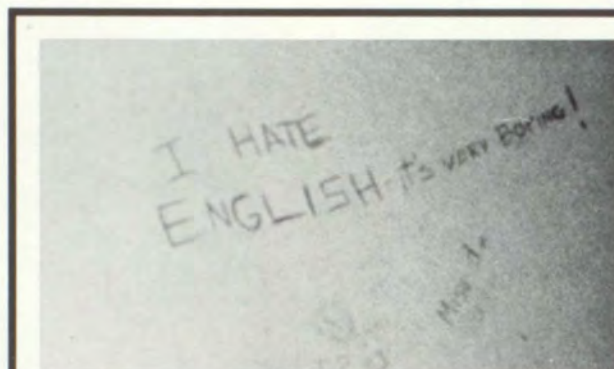 I HATE
ENGLISH IT'S VERY BORING!